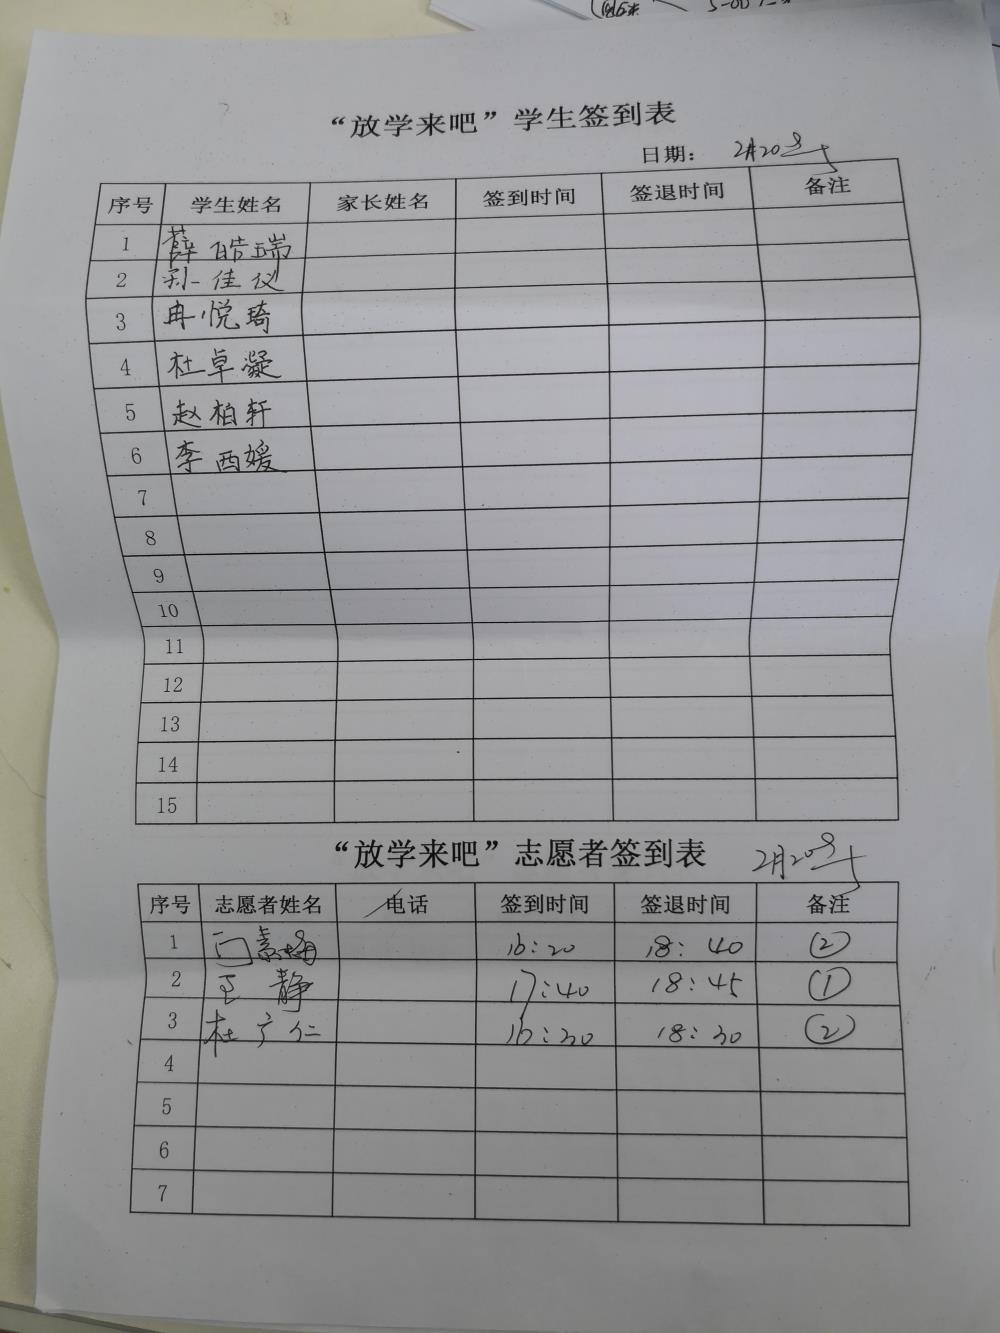 “放学来吧”学生签到表
日期： 2月20号
序号 学生姓名 家长姓名 签到时间 签退时间 备注
1 薛皓瑞
2 孙佳仪
3 冉悦琦
4 杜卓凝
5 赵柏轩
6 李西媛
7
8
9
10
11
12
13
14
15
“放学来吧”志愿者签到表 2月20号
序号 志愿者姓名 电话 签到时间 签退时间 备注
1 闫素梅 16:20 18:40 ②
2 王静 17:40 18:45 ①
3 杜广仁 16:30 18:30 ②
4
5
6
7